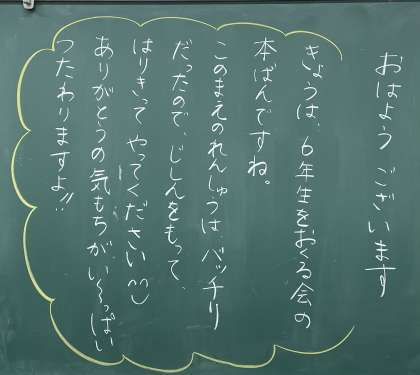 おはよう ございます
きょうは、6年生をおくる会の
本ばんですね。
このまえのれんしゅうは、バッチリ
だったので、じしんをもって、
はりきって やってください^^
ありがとうの気もちがい〜っぱい
つたわりますよ!!